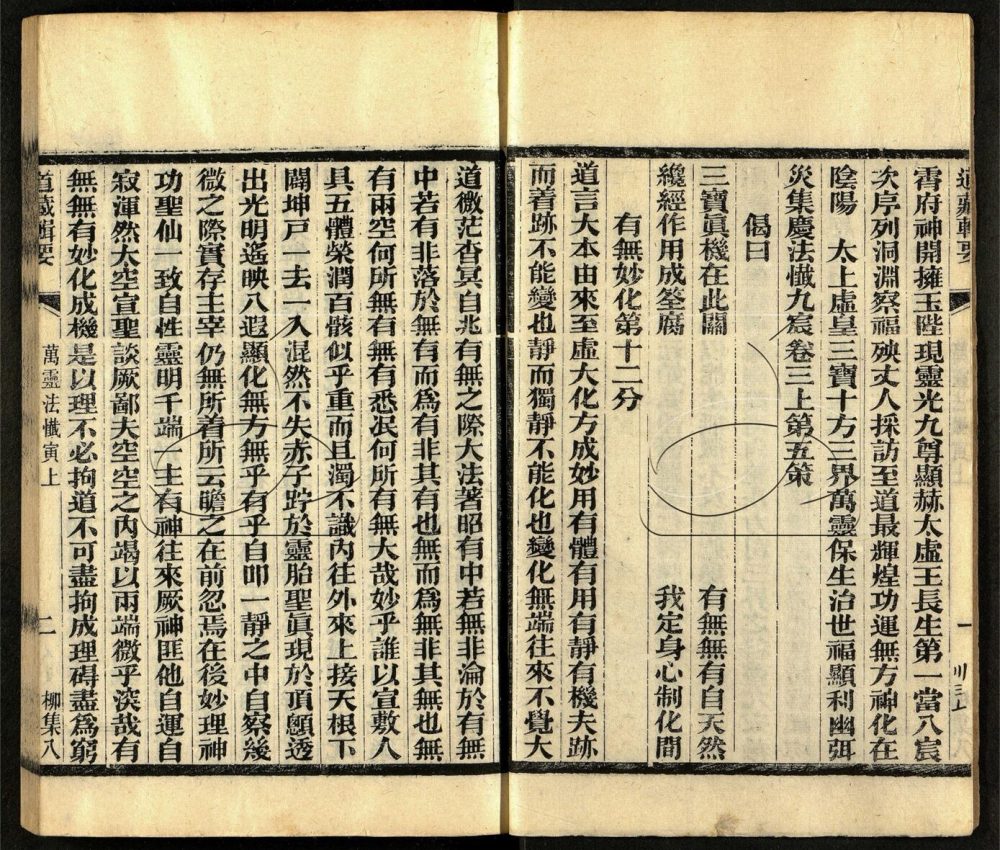 霄府神開擁玉陛現靈光九尊顯赫太虛王長生第一當八宸
次序列洞淵察福殃丈人採訪至道最輝煌功運無方神化在
陰陽　太上虛皇三寶十方三界萬靈保生治世福顯利幽弭
災集慶法懺九宸卷三上第五策
偈曰
三寶眞機在此關　有無無有自天然
纔經作用成筌腐　我定身心制化間
有無妙化第十二分
道言大本由來至虛大化方成妙用有體有用有靜有機夫跡
而着跡不能變也靜而獨靜不能化也變化無端往來不覺大
道微茫杳冥自兆有無之際大法著昭有中若無非淪於有無
中若有非落於無有而爲有非其有也無而爲無非其無也無
有兩空何所無有無有悉泯何所有無大哉妙乎誰以宣敷人
具五體榮潤百骸似乎重而且濁不識內往外來上接天根下
闢坤戸一去一入混然不失赤子貯於靈胎聖眞現於頂顖透
出光明遙映八遐顯化無方無乎有乎自叩一靜之中自察幾
微之際實存主宰仍無所着所云瞻之在前忽焉在後妙理神
功聖仙一致自性靈明千端一主有神往來厥神匪他自運自
寂渾然太空宣聖談厥鄙夫空空之內竭以兩端微乎深哉有
無無有妙化成機是以理不必拘道不可盡拘成理碍盡爲窮
道藏輯要
萬靈法懺寅上
二
柳集八